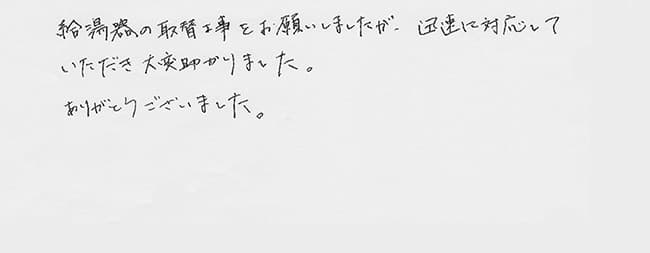 給湯器の取替工事をお願いしましたが、迅速に対応して
いただき大変助かりました。
ありがとうございました。